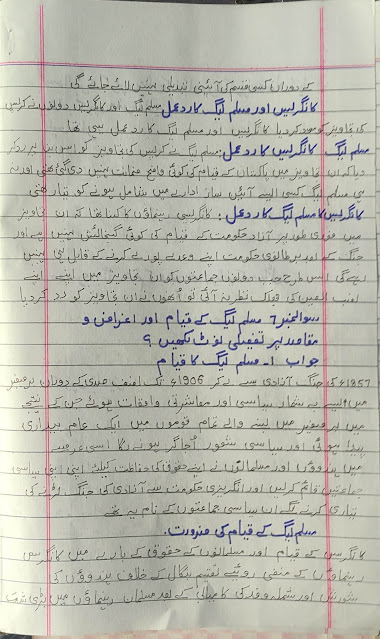 کے دوران کسی قسم کی آئینی تبدیلی نہیں لائے جائے گی
کانگرلیس اور مسلم لیگ کا رد عمل مسلم لیگ اور کانگرلیس دونوں نے کرپس
کی تجاویز کو مسترد کر دیا کانگرلیس اور مسلم لیگ کا رد عمل یہی تھا
مسلم لیگ کا رد عمل مسلم لیگ نے کرپس کی تجاویز کو اس بنا پر رد کر
دیا کہ ان تجاویز میں پاکستان کے قیام کی کوئی واضح ضمانت نہیں دی گئی تھی اور نہ
ہی مسلم لیگ کسی ایسے آئین ساز ادارے میں شامل ہونے کو تیار تھی
کانگرلیس کا رد عمل : کانگرلیسی رہنماؤں کا کہنا تھا کہ ان تجاویز
میں فوری طور پر آزاد حکومت کے قیام کی کوئی گنجائش نہیں ہے اور
جنگ کے بعد برطانوی حکومت اپنے وعدے پورے کرنے کے قابل ہی نہیں
رہے گی اس طرح جب دونوں جماعتوں کو ان تجاویز میں اپنے اپنے
نصب العین کی نظر نہ آئی تو انھوں نے ان تجاویز کو رد کر دیا
سوال نمبر 7 مسلم لیگ کے قیام اور اغراض و
مقاصد پر تفصیلی نوٹ لکھیں ؟
جواب 1۔ مسلم لیگ کا قیام
1857ء کی جنگ آزادی سے لے کر 1906ء تک نصف صدی کے دوران برصغیر
میں ایسے بے شمار سیاسی اور معاشرتی واقعات ہوئے جن کے نتیجے
میں برصغیر میں بسنے والے تمام قوموں میں ایک عام بیداری
پیدا ہوئی اور سیاسی شعور اجاگر ہونے لگا اسی عرصے
میں ہندوؤں اور مسلمانوں نے اپنے حقوق کی حفاظت کیلئے اپنی اپنی سیاسی
جماعتیں قائم کر لیں اور انگریزی حکومت سے آزادی کی جنگ لڑنے کی
تیاری کرنے لگے ان سیاسی جماعتوں کے نام یہ تھے
مسلم لیگ کے قیام کی ضرورت۔
کانگرس کے قیام اور مسلمانوں کے حقوق کے بارے میں کانگرس
رہنماؤں کے منفی رویئے تقسیم بنگال کے خلاف ہندوؤں کی
شورشیں اور شملہ وفد کی کامیابی کے بعد مسلمان رہنماؤں میں بڑی شدت